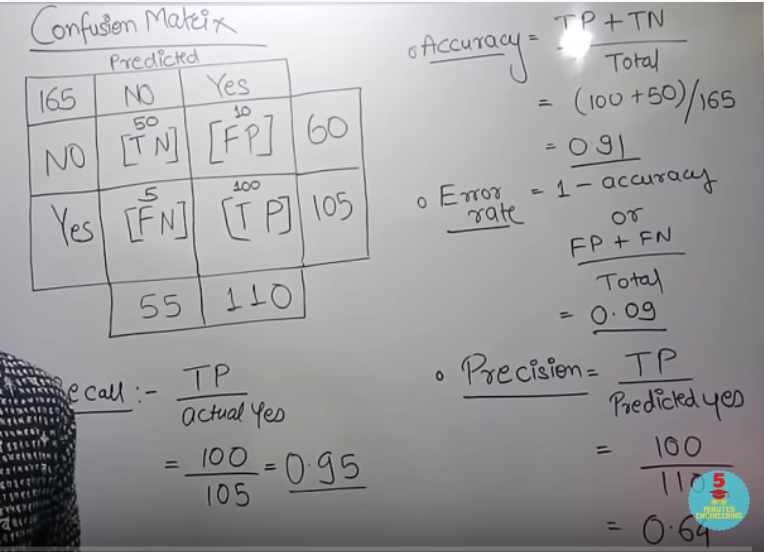 Confusion Matrix
Predicted
165 NO Yes
NO 50 [TN] 10 [FP] 60
Yes 5 [FN] 100 [TP] 105
55 110
ecall :- TP / actual Yes
= 100 / 105 = 0.95
Accuracy = TP + TN / Total
= (100 + 50) / 165
= 0.91
Error rate = 1 - accuracy
or
FP + FN / Total
= 0.09
Precision = TP / Predicted yes
= 100 / 110
= 0.64
5
MINUTES
ENGINEERING